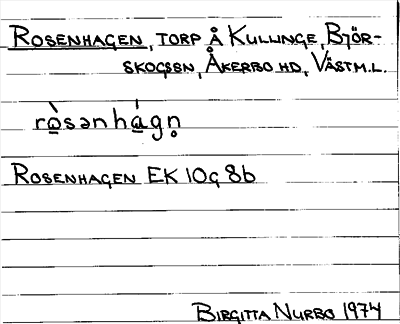 ROSENHAGEN, TORP Å KULLINGE, BJÖR-
SKOGSSN, ÅKERBO HD, VÄSTM.L.
rò̲sənhá̲gn̥
ROSENHAGEN EK 10G 8b
BIRGITTA NURBO 1974